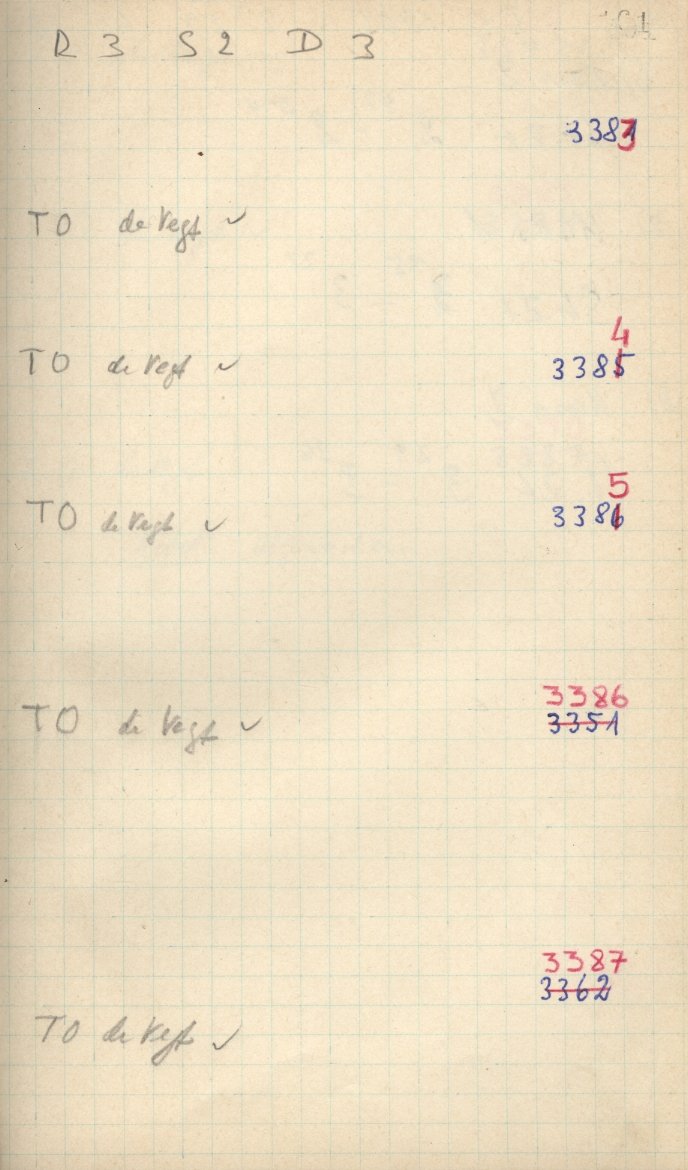 R 3 S 2 D 3
3383
TO de Vegt ✓
4
TO de Vegt ✓ 3385
5
TO de Vegt ✓ 3386
3386
TO de Vegt ✓ 3351
3387
3362
TO de Vegt ✓